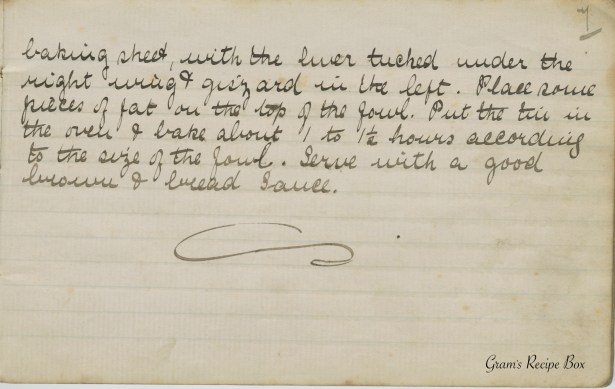 7
baking sheet, with the liver tucked under the
right wing & gizzard in the left. Place some
pieces of fat on the top of the fowl. Put the tin in
the oven & bake about 1 to 1½ hours according
to the size of the fowl. Serve with a good
brown & bread Sauce.
Gram's Recipe Box